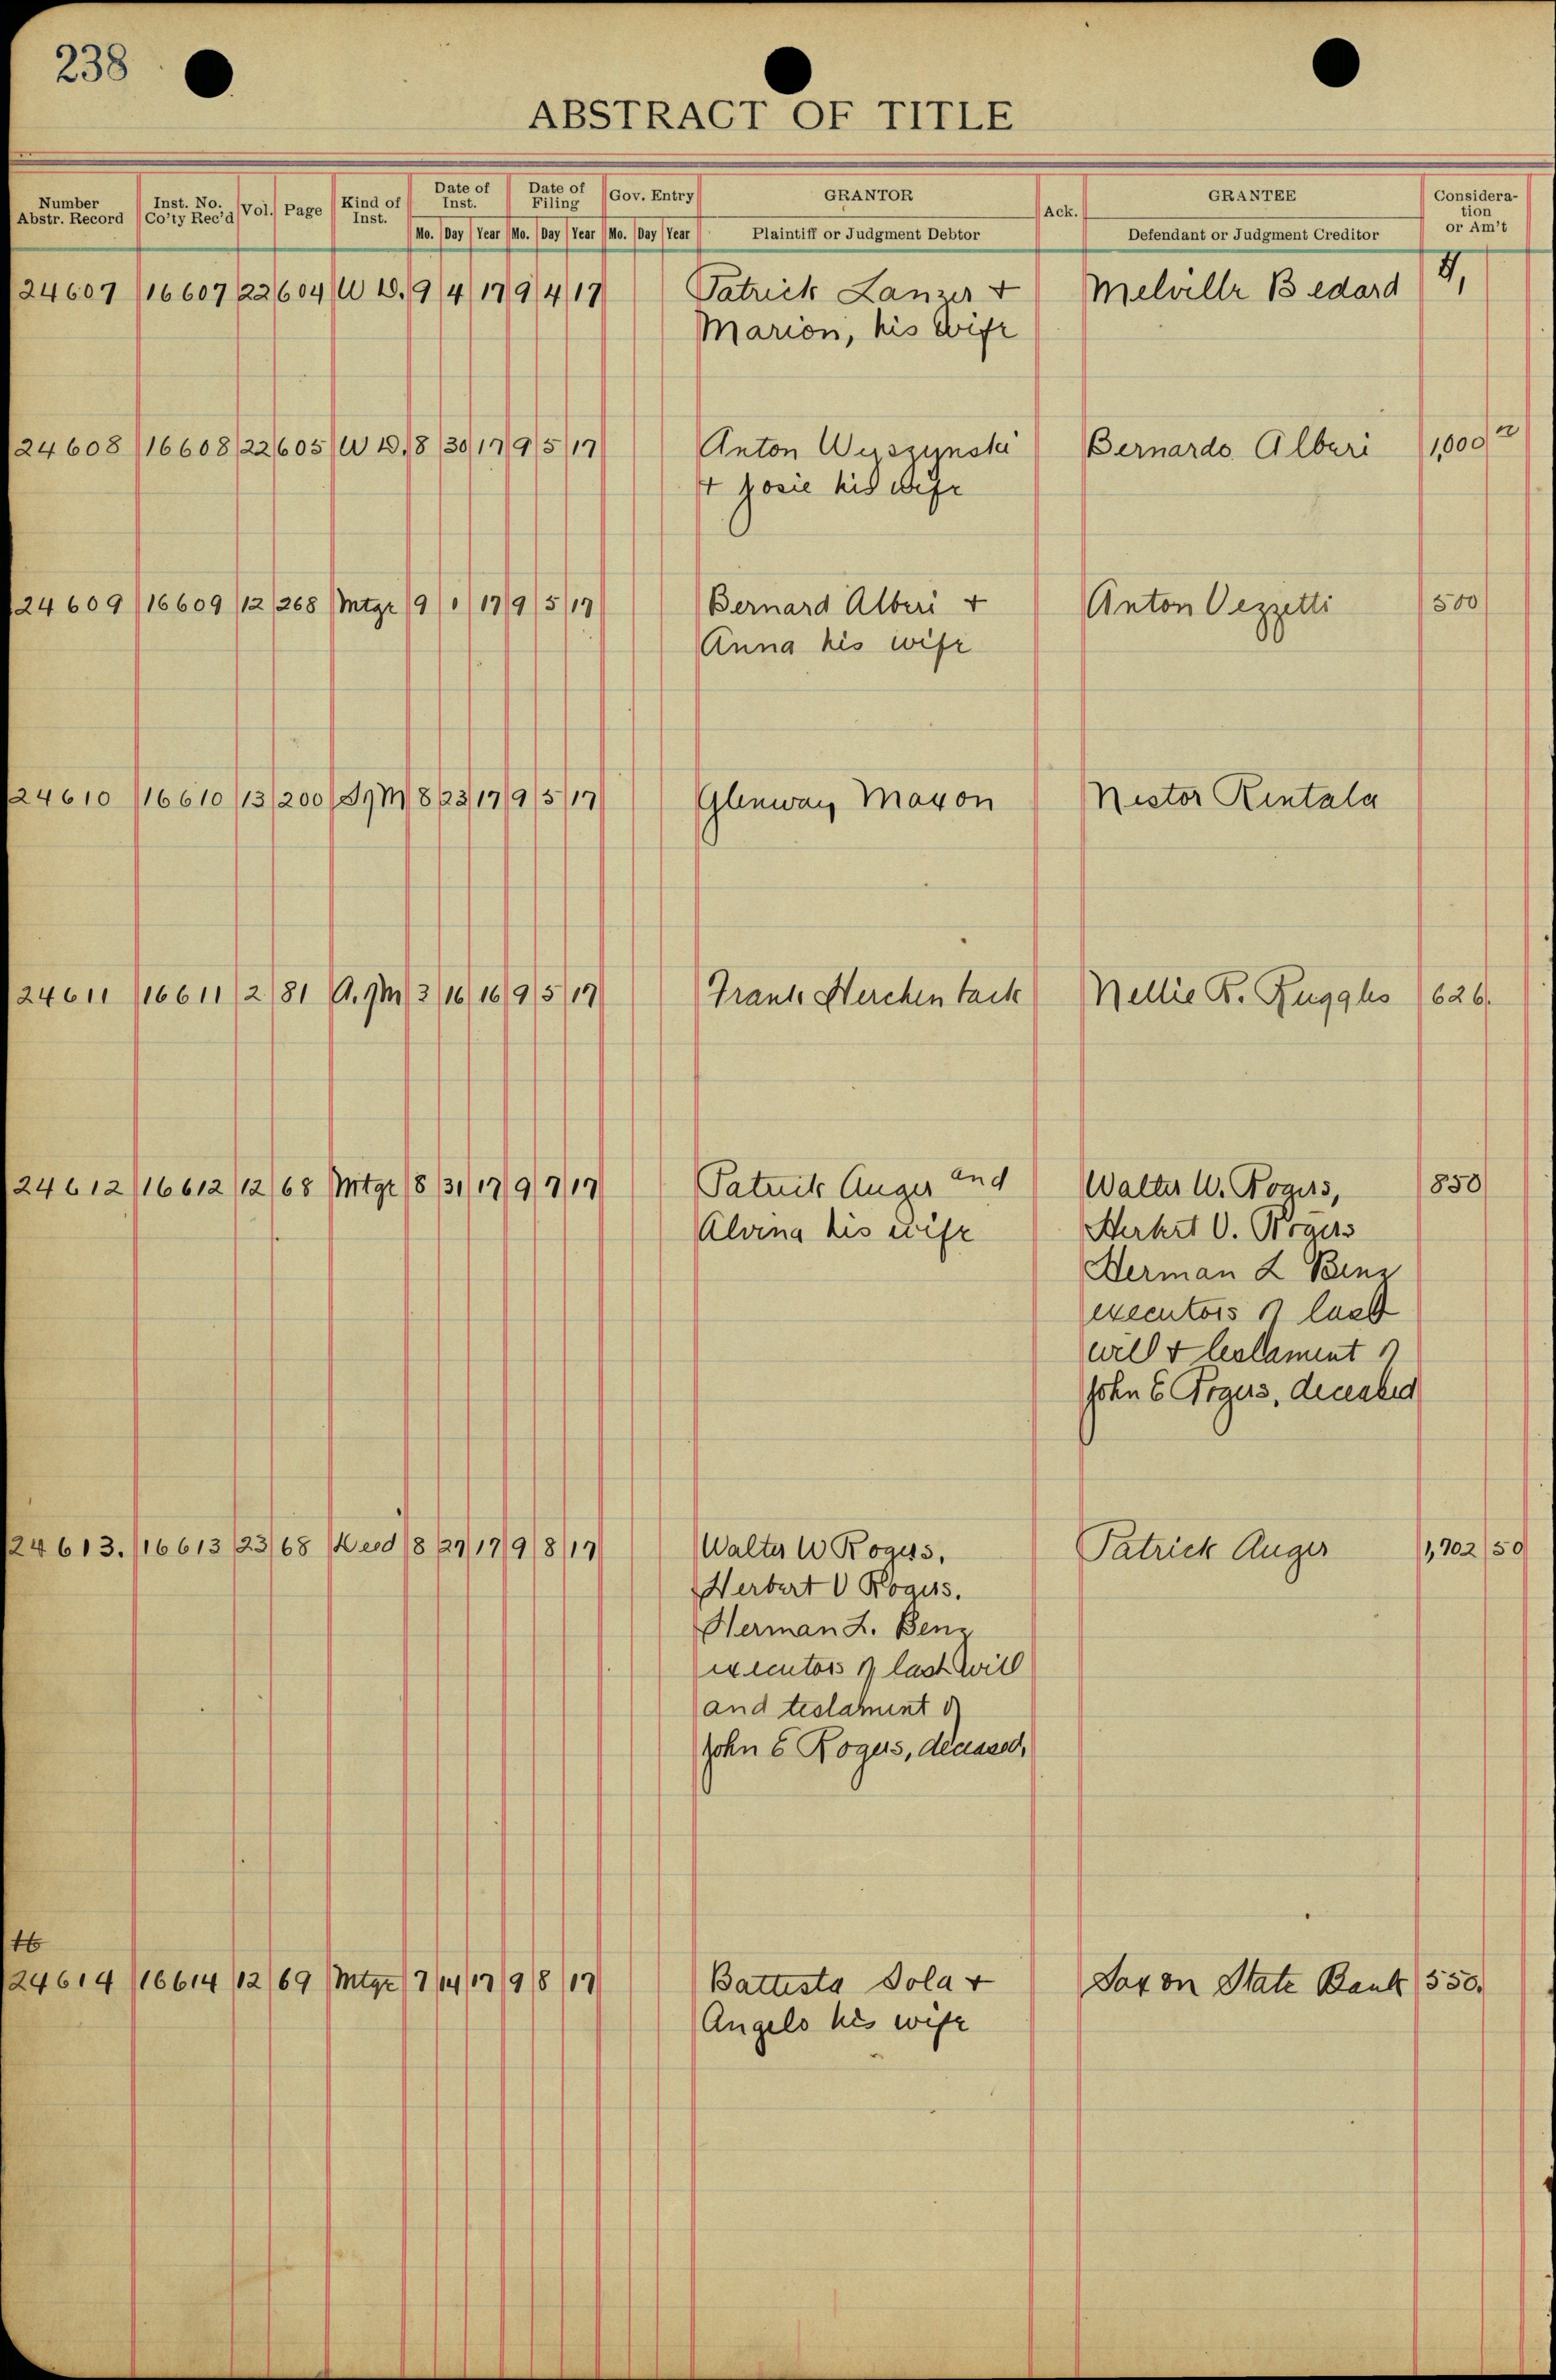 238
ABSTRACT OF TITLE
Number Abstr. Record Inst. No. Co'ty Rec'd Vol. Page Kind of Inst. Date of Inst. Date of Filing Gov. Entry GRANTOR Ack. GRANTEE Consideration or Am't
Mo. Day Year Mo. Day Year Mo. Day Year Plaintiff or Judgment Debtor Defendant or Judgment Creditor
24607 16607 22 604 W D. 9 4 17 9 4 17 Patrick Lanzer + Melville Bedard
Marion, his wife
24608 16608 22 605 W D. 8 30 17 9 5 17 Anton Wyszynski Bernardo Alberi 1,000
+ Josie his wife
24609 16609 12 268 Mtge 9 1 17 9 5 17 Bernard Alberi + Anton Vezzetti 500
Anna his wife
24610 16610 13 200 8 23 17 9 5 17 Glenway Maxon Nestor Rintala
24611 16611 2 81 A. 3 16 16 9 5 17 Frank Herchen back Nellie B. Ruggles 626.
24612 16612 12 68 Mtge 8 31 17 9 7 17 Patrick Auger and Walter W. Rogers, 850
Alvina his wife Herbert V. Rogers
Herman L Benz
executors of last
will + testament of
John E Rogers, deceased
24613. 16613 23 68 Deed 8 27 17 9 8 17 Walter W Rogers, Patrick Auger 1,702 50
Herbert V Rogers.
Herman L. Benz
executors of last will
and testament of
John E Rogers, deceased,
24614 16614 12 69 Mtge 7 14 17 9 8 17 Battista Sola + Saxon State Bank 550.
Angelo his wife